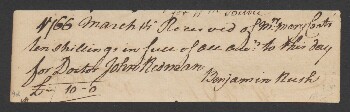 1766 March 14 Received of Mrs Mary Coats
ten shillings in full of all acts to this day
for Doctor John Redman
Benjamin Rush
£- 10-0